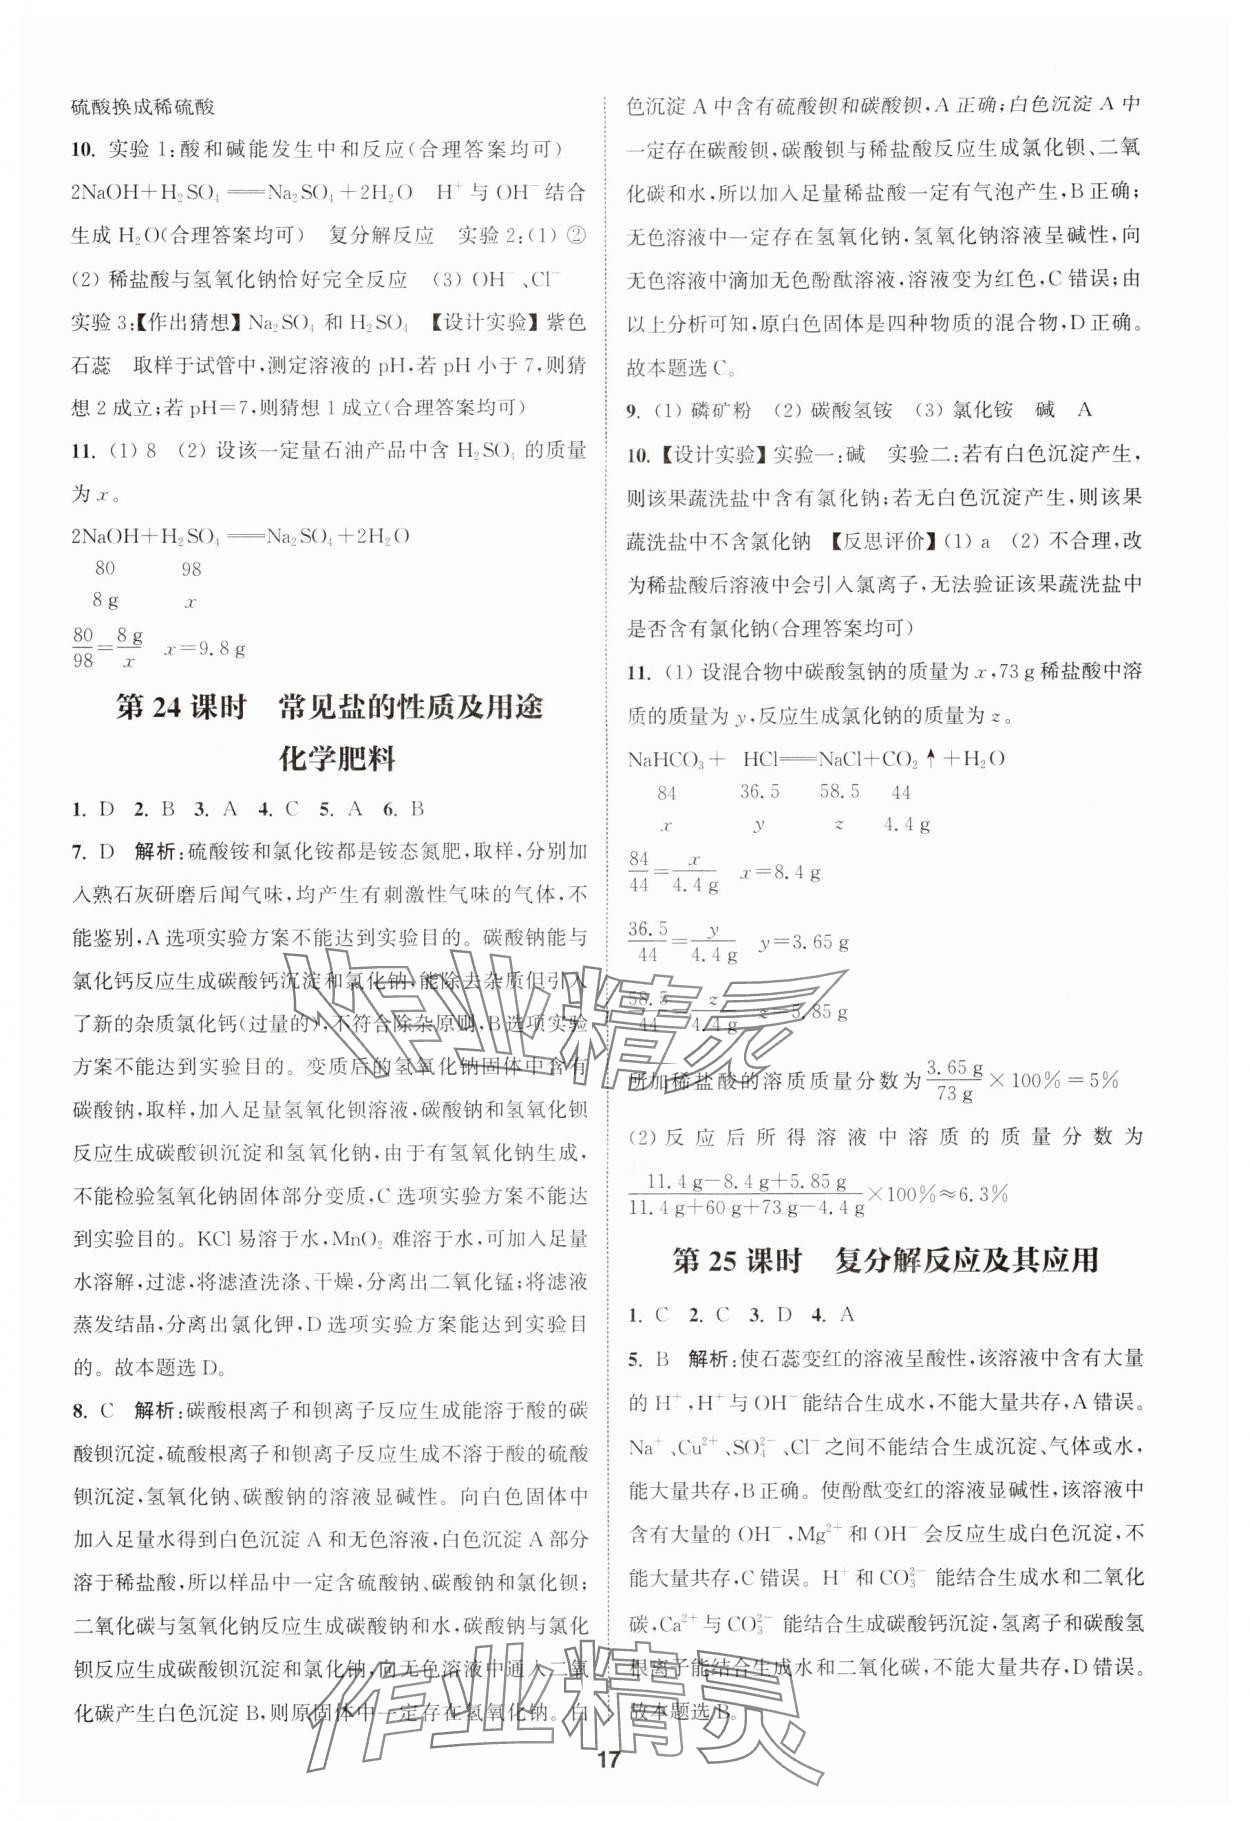 硫酸换成稀硫酸
10. 实验 1:酸和碱能发生中和反应(合理答案均可)
2NaOH+H₂SO₄══Na₂SO₄+2H₂O　H⁺与 OH⁻结合
生成 H₂O(合理答案均可)　复分解反应　实验 2:(1) ②
(2) 稀盐酸与氢氧化钠恰好完全反应　(3) OH⁻、Cl⁻
实验 3:【作出猜想】Na₂SO₄ 和 H₂SO₄　【设计实验】紫色
石蕊　取样于试管中,测定溶液的 pH,若 pH 小于 7,则猜
想 2 成立;若 pH=7,则猜想 1 成立(合理答案均可)
11. (1) 8　(2) 设该一定量石油产品中含 H₂SO₄ 的质量
为 x。
2NaOH+H₂SO₄══Na₂SO₄+2H₂O
80　98
8 g　x
80/98=8 g/x　x=9.8 g
第 24 课时　常见盐的性质及用途
化学肥料
1. D　2. B　3. A　4. C　5. A　6. B
7. D　解析:硫酸铵和氯化铵都是铵态氮肥,取样,分别加
入熟石灰研磨后闻气味,均产生有刺激性气味的气体,不
能鉴别,A 选项实验方案不能达到实验目的。碳酸钠能与
氯化钙反应生成碳酸钙沉淀和氯化钠,能除去杂质但引入
了新的杂质氯化钙(过量的),不符合除杂原则,B 选项实验
方案不能达到实验目的。变质后的氢氧化钠固体中含有
碳酸钠,取样,加入足量氢氧化钡溶液,碳酸钠和氢氧化钡
反应生成碳酸钡沉淀和氢氧化钠,由于有氢氧化钠生成,
不能检验氢氧化钠固体部分变质,C 选项实验方案不能达
到实验目的。KCl 易溶于水,MnO₂ 难溶于水,可加入足量
水溶解,过滤,将滤渣洗涤、干燥,分离出二氧化锰;将滤液
蒸发结晶,分离出氯化钾,D 选项实验方案能达到实验目
的。故本题选 D。
8. C　解析:碳酸根离子和钡离子反应生成能溶于酸的碳
酸钡沉淀,硫酸根离子和钡离子反应生成不溶于酸的硫酸
钡沉淀,氢氧化钠、碳酸钠的溶液显碱性。向白色固体中
加入足量水得到白色沉淀 A 和无色溶液,白色沉淀 A 部分
溶于稀盐酸,所以样品中一定含硫酸钠、碳酸钠和氯化钡;
二氧化碳与氢氧化钠反应生成碳酸钠和水,碳酸钠与氯化
钡反应生成碳酸钡沉淀和氯化钠,向无色溶液中通入二氧
化碳产生白色沉淀 B,则原固体中一定存在氢氧化钠。白
色沉淀 A 中含有硫酸钡和碳酸钡,A 正确;白色沉淀 A 中
一定存在碳酸钡,碳酸钡与稀盐酸反应生成氯化钡、二氧
化碳和水,所以加入足量稀盐酸一定有气泡产生,B 正确;
无色溶液中一定存在氢氧化钠,氢氧化钠溶液呈碱性,向
无色溶液中滴加无色酚酞溶液,溶液变为红色,C 错误;由
以上分析可知,原白色固体是四种物质的混合物,D 正确。
故本题选 C。
9. (1) 磷矿粉　(2) 碳酸氢铵　(3) 氯化铵　碱　A
10. 【设计实验】实验一:碱　实验二:若有白色沉淀产生,
则该果蔬洗盐中含有氯化钠;若无白色沉淀产生,则该果
蔬洗盐中不含氯化钠　【反思评价】(1) a　(2) 不合理,改
为稀盐酸后溶液中会引入氯离子,无法验证该果蔬洗盐中
是否含有氯化钠(合理答案均可)
11. (1) 设混合物中碳酸氢钠的质量为 x,73 g 稀盐酸中溶
质的质量为 y,反应生成氯化钠的质量为 z。
NaHCO₃+　HCl══NaCl+CO₂↑+H₂O
84　36.5　58.5　44
x　y　z　4.4 g
84/44=x/4.4 g　x=8.4 g
36.5/44=y/4.4 g　y=3.65 g
58.5/44=z/4.4 g　z=5.85 g
所加稀盐酸的溶质质量分数为3.65 g/73 g×100%=5%
(2) 反应后所得溶液中溶质的质量分数为
11.4 g−8.4 g+5.85 g/11.4 g+60 g+73 g−4.4 g×100%≈6.3%
第 25 课时　复分解反应及其应用
1. C　2. C　3. D　4. A
5. B　解析:使石蕊变红的溶液呈酸性,该溶液中含有大量
的 H⁺,H⁺与 OH⁻能结合生成水,不能大量共存,A 错误。
Na⁺、Cu²⁺、SO₄²⁻、Cl⁻之间不能结合生成沉淀、气体或水,
能大量共存,B 正确。使酚酞变红的溶液显碱性,该溶液中
含有大量的 OH⁻,Mg²⁺和 OH⁻会反应生成白色沉淀,不
能大量共存,C 错误。H⁺和 CO₃²⁻能结合生成水和二氧化
碳,Ca²⁺与 CO₃²⁻能结合生成碳酸钙沉淀,氢离子和碳酸氢
根离子能结合生成水和二氧化碳,不能大量共存,D 错误。
故本题选 B。
17
作业精灵
作业精灵